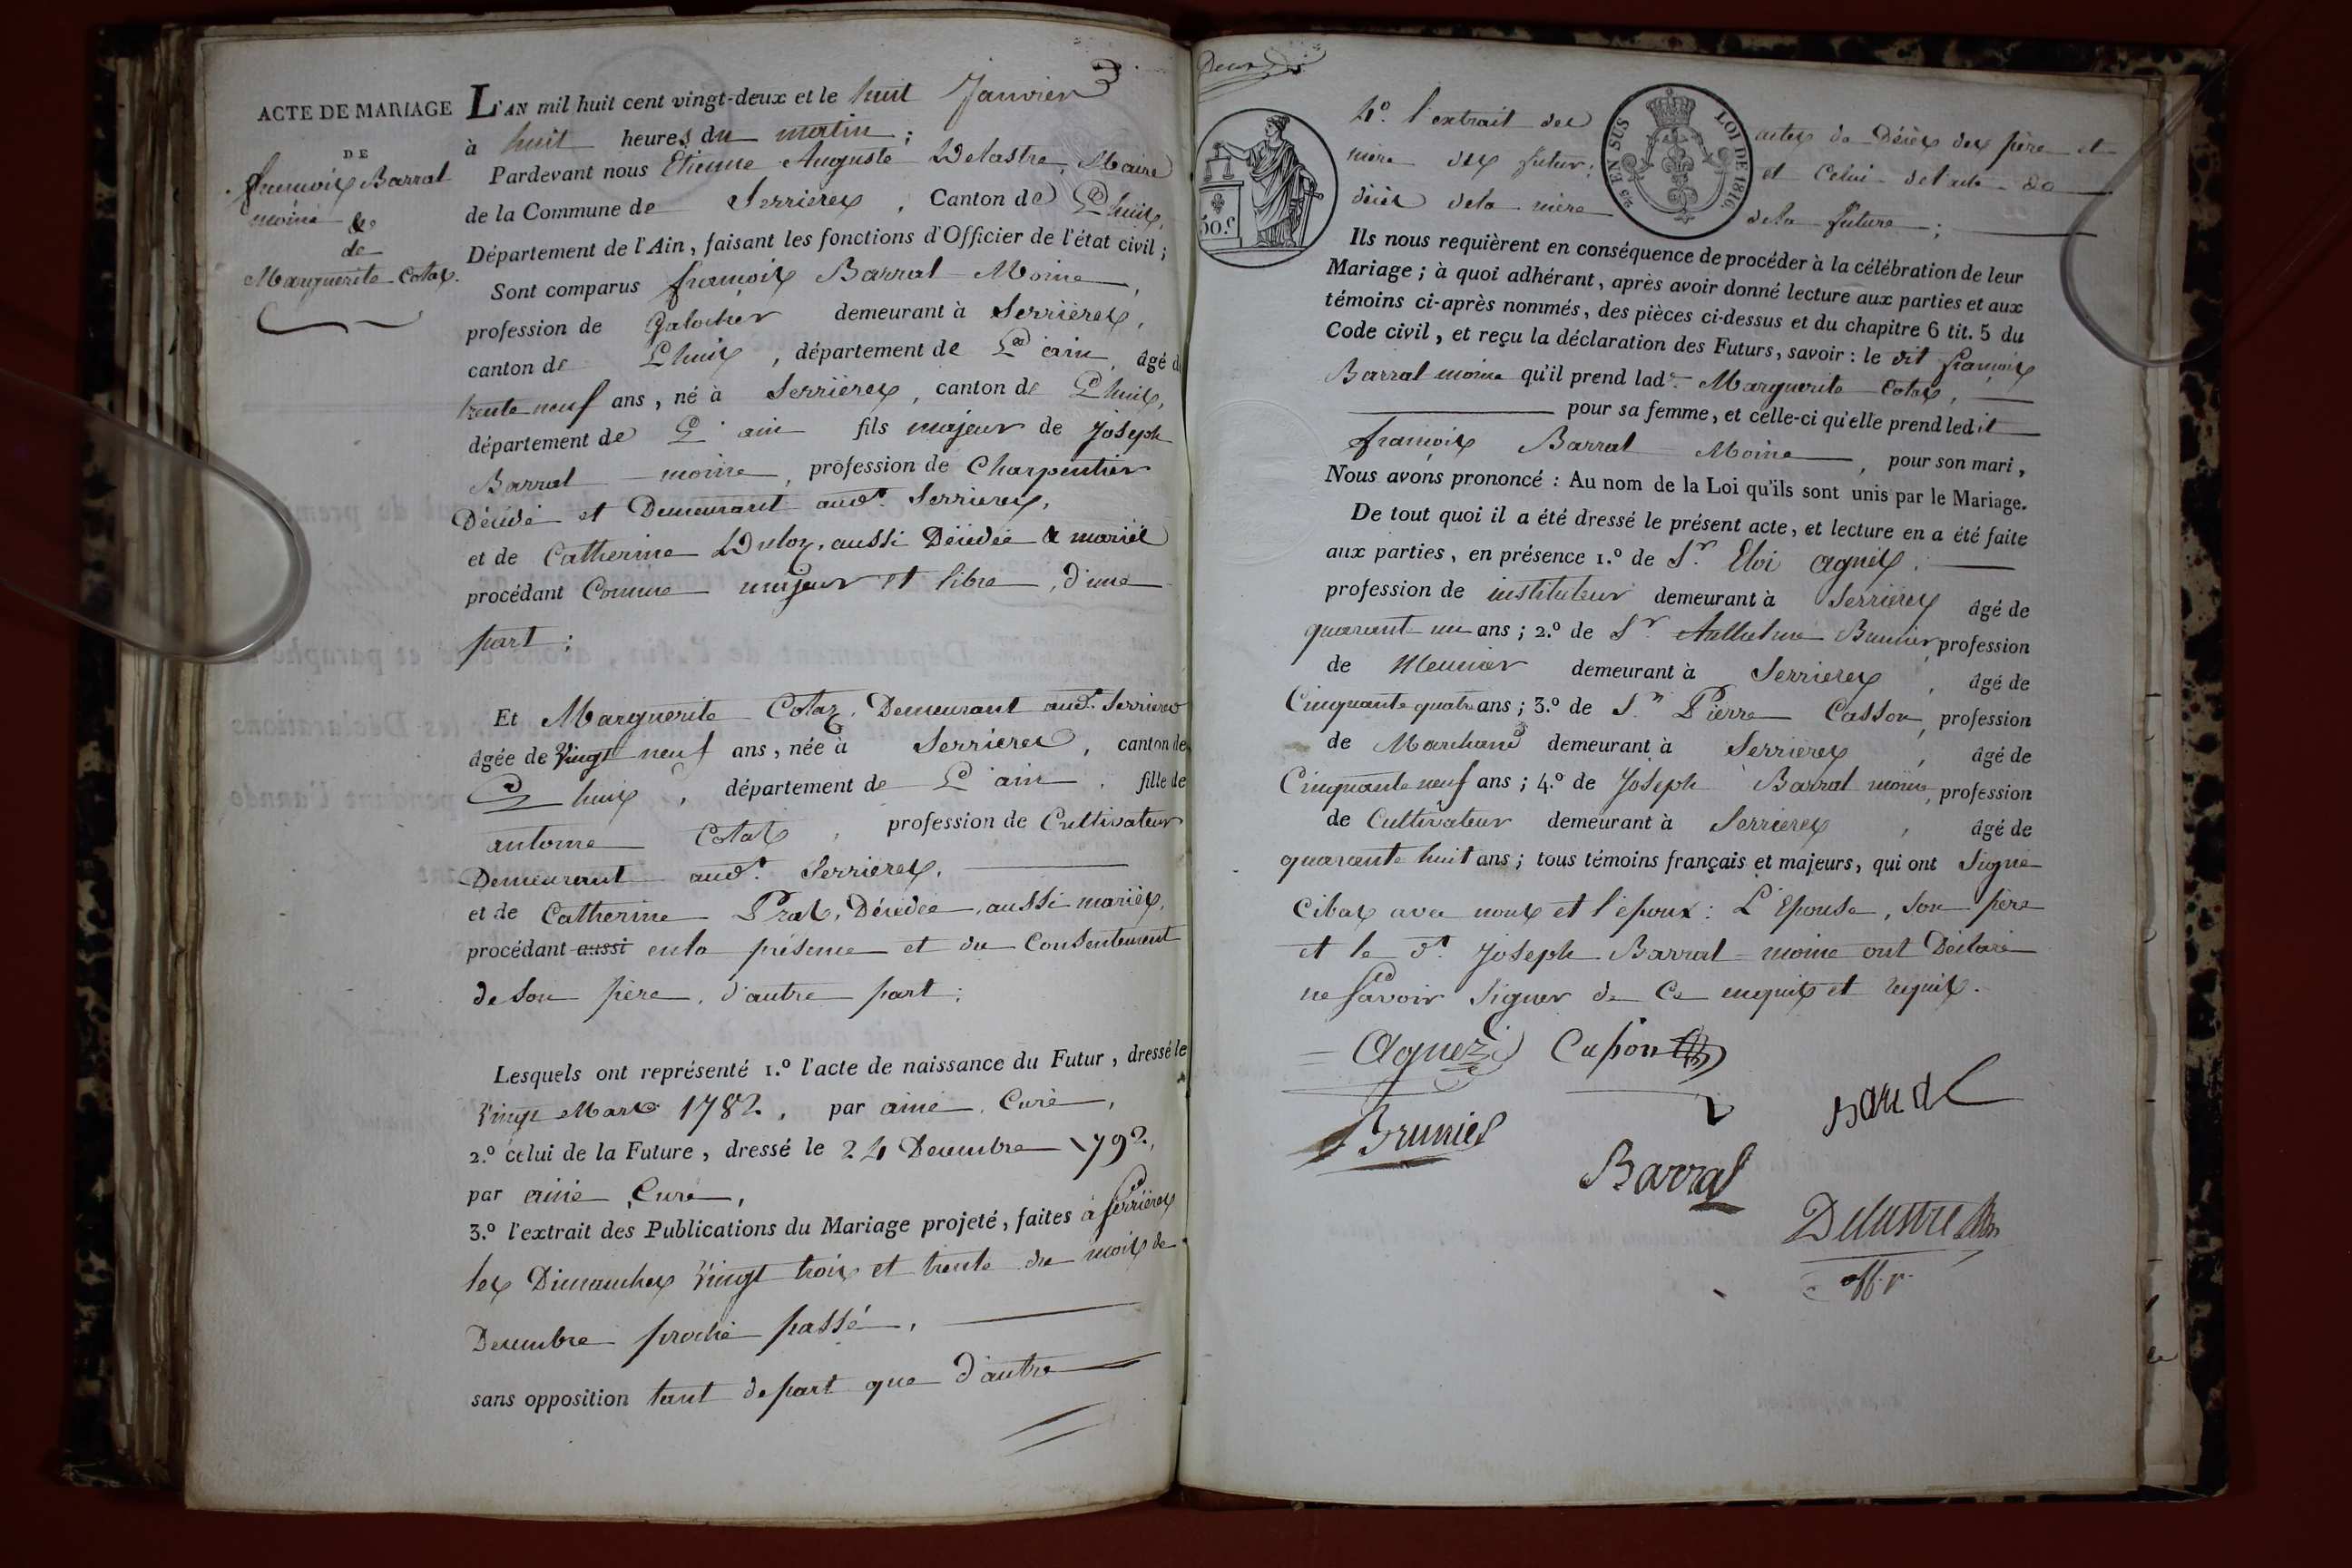 3
ACTE DE MARIAGE
DE
françois Barral
moine &
de
Marguerite Cotaz.
L'AN mil huit cent vingt-deux et le huit Janvier
à huit heures du matin ;
Pardevant nous Etienne Auguste Delastre, Maire
de la Commune de Serrieres, Canton de Lhuis,
Département de l'Ain, faisant les fonctions d'Officier de l'état civil ;
Sont comparus françois Barral Moine,
profession de Galochier demeurant à Serrières,
canton de Lhuis, département de L'ain, âgé de
trente neuf ans, né à Serrières, canton de Lhuis,
département de L'ain fils majeur de Joseph
Barral moine, profession de Charpentier
Décédé et Demeurant aud.t Serrieres,
et de Catherine aussi Décédée & mariés
procédant Comme majeur et libre, d'une
part :
Et Marguerite Cotaz, Demeurant aud.t Serrieres
âgée de Vingt neuf ans, née à Serrieres, canton de
Lhuis, département de L'ain, fille de
antoine Cotaz, profession de Cultivateur
Demeurant aud.t Serrieres,
et de Catherine Prat, Décédée, aussi mariés,
procédant aussi en la présence et du Consentement
de son père, d'autre part :
Lesquels ont représenté 1.º l'acte de naissance du Futur, dressé le
Vingt Mars 1782, par aimé, Curé,
2.º celui de la Future, dressé le 24 Decembre 1792,
par aimé Curé,
3.º l'extrait des Publications du Mariage projeté, faites à Serrières
les Dimanches Vingt trois et trente du mois de
Decembre proche passé,
sans opposition tant de part que d'autre
Deux
50 c.
2/5 EN SUS
LOI DE 1816.
4.º l'extrait des actes de Décès des père et
mère du futur ; et Celui de l'acte de
décès de la mère de la future ;
Ils nous requièrent en conséquence de procéder à la célébration de leur
Mariage ; à quoi adhérant, après avoir donné lecture aux parties et aux
témoins ci-après nommés, des pièces ci-dessus et du chapitre 6 tit. 5 du
Code civil, et reçu la déclaration des Futurs, savoir : le dit françois
Barral moine qu'il prend lad.e Marguerite Cotaz,
pour sa femme, et celle-ci qu'elle prend ledit
françois Barral Moine, pour son mari,
Nous avons prononcé : Au nom de la Loi qu'ils sont unis par le Mariage.
De tout quoi il a été dressé le présent acte, et lecture en a été faite
aux parties, en présence 1.º de S.r Eloi agniés,
profession de instituteur demeurant à Serrieres âgé de
quarante un ans ; 2.º de S.r Brunier profession
de Meunier demeurant à Serrieres, âgé de
Cinquante quatre ans ; 3.º de S.r Pierre Casson, profession
de Marchand demeurant à Serrieres, âgé de
Cinquante neuf ans ; 4.º de Joseph Barral moine, profession
de Cultivateur demeurant à Serrieres, âgé de
quarante huit ans ; tous témoins français et majeurs, qui ont Signé
Cibas avec nous et l'époux : L'Epouse, son père
et le d.t Joseph Barral = moine ont Déclaré
ne Savoir Signer de Ce enquis et requis.
Agnez
Brunier
Barral
Delastre
off. p.